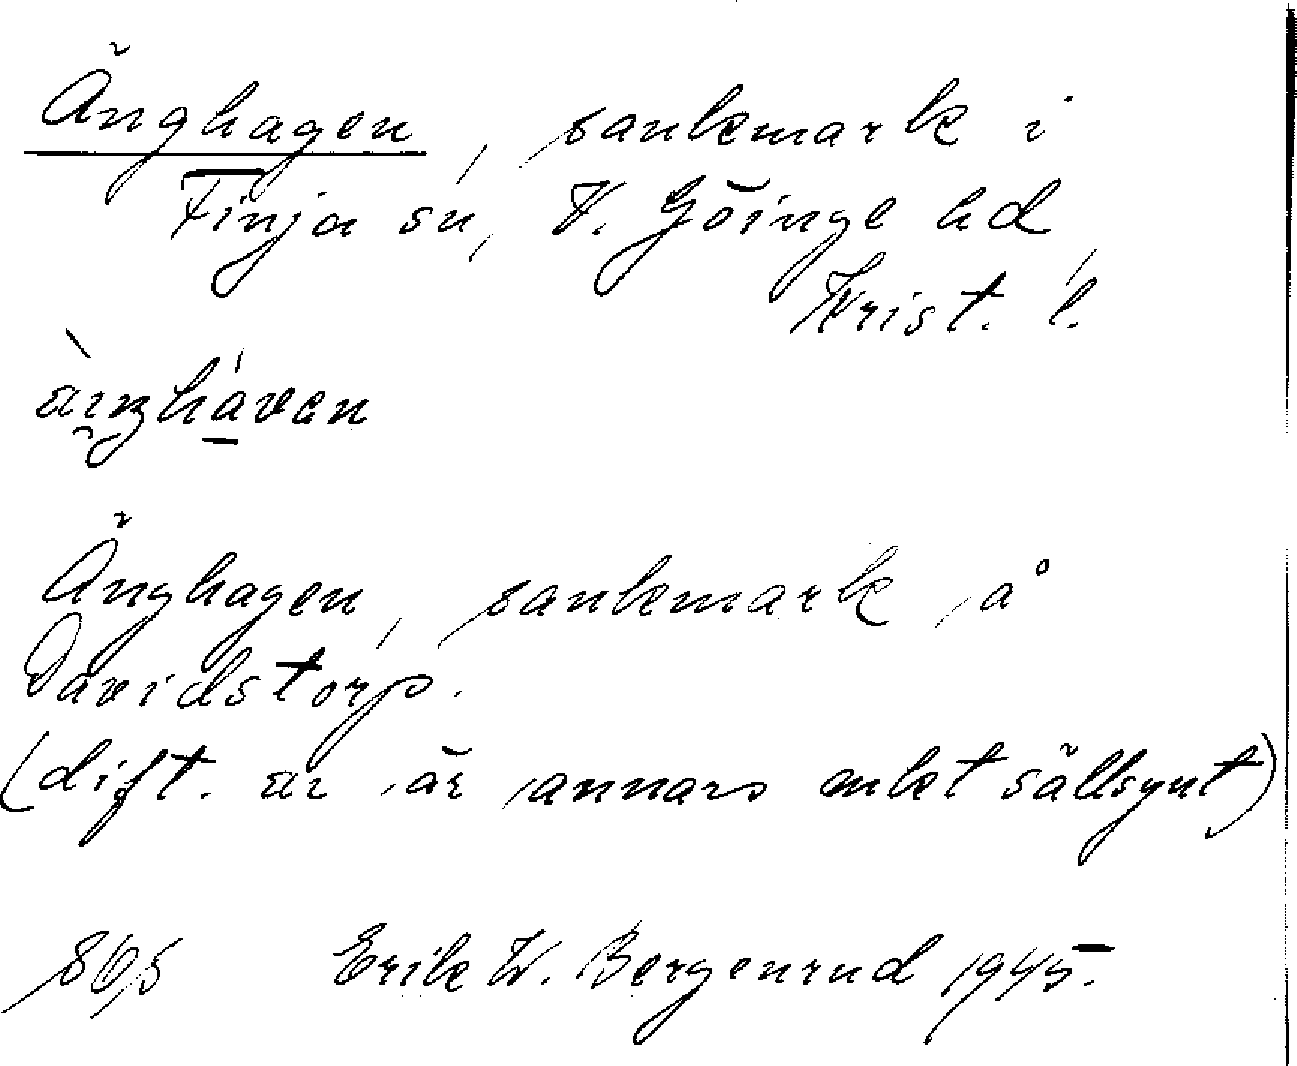 Änghagen, sankmark i
Finja sn, V. Göinge hd,
Krist. l.
Änghagen, sankmark å
Davidstorp.
(dift. är annars mkt sällsynt)
Erik W. Bergenrud 1945.